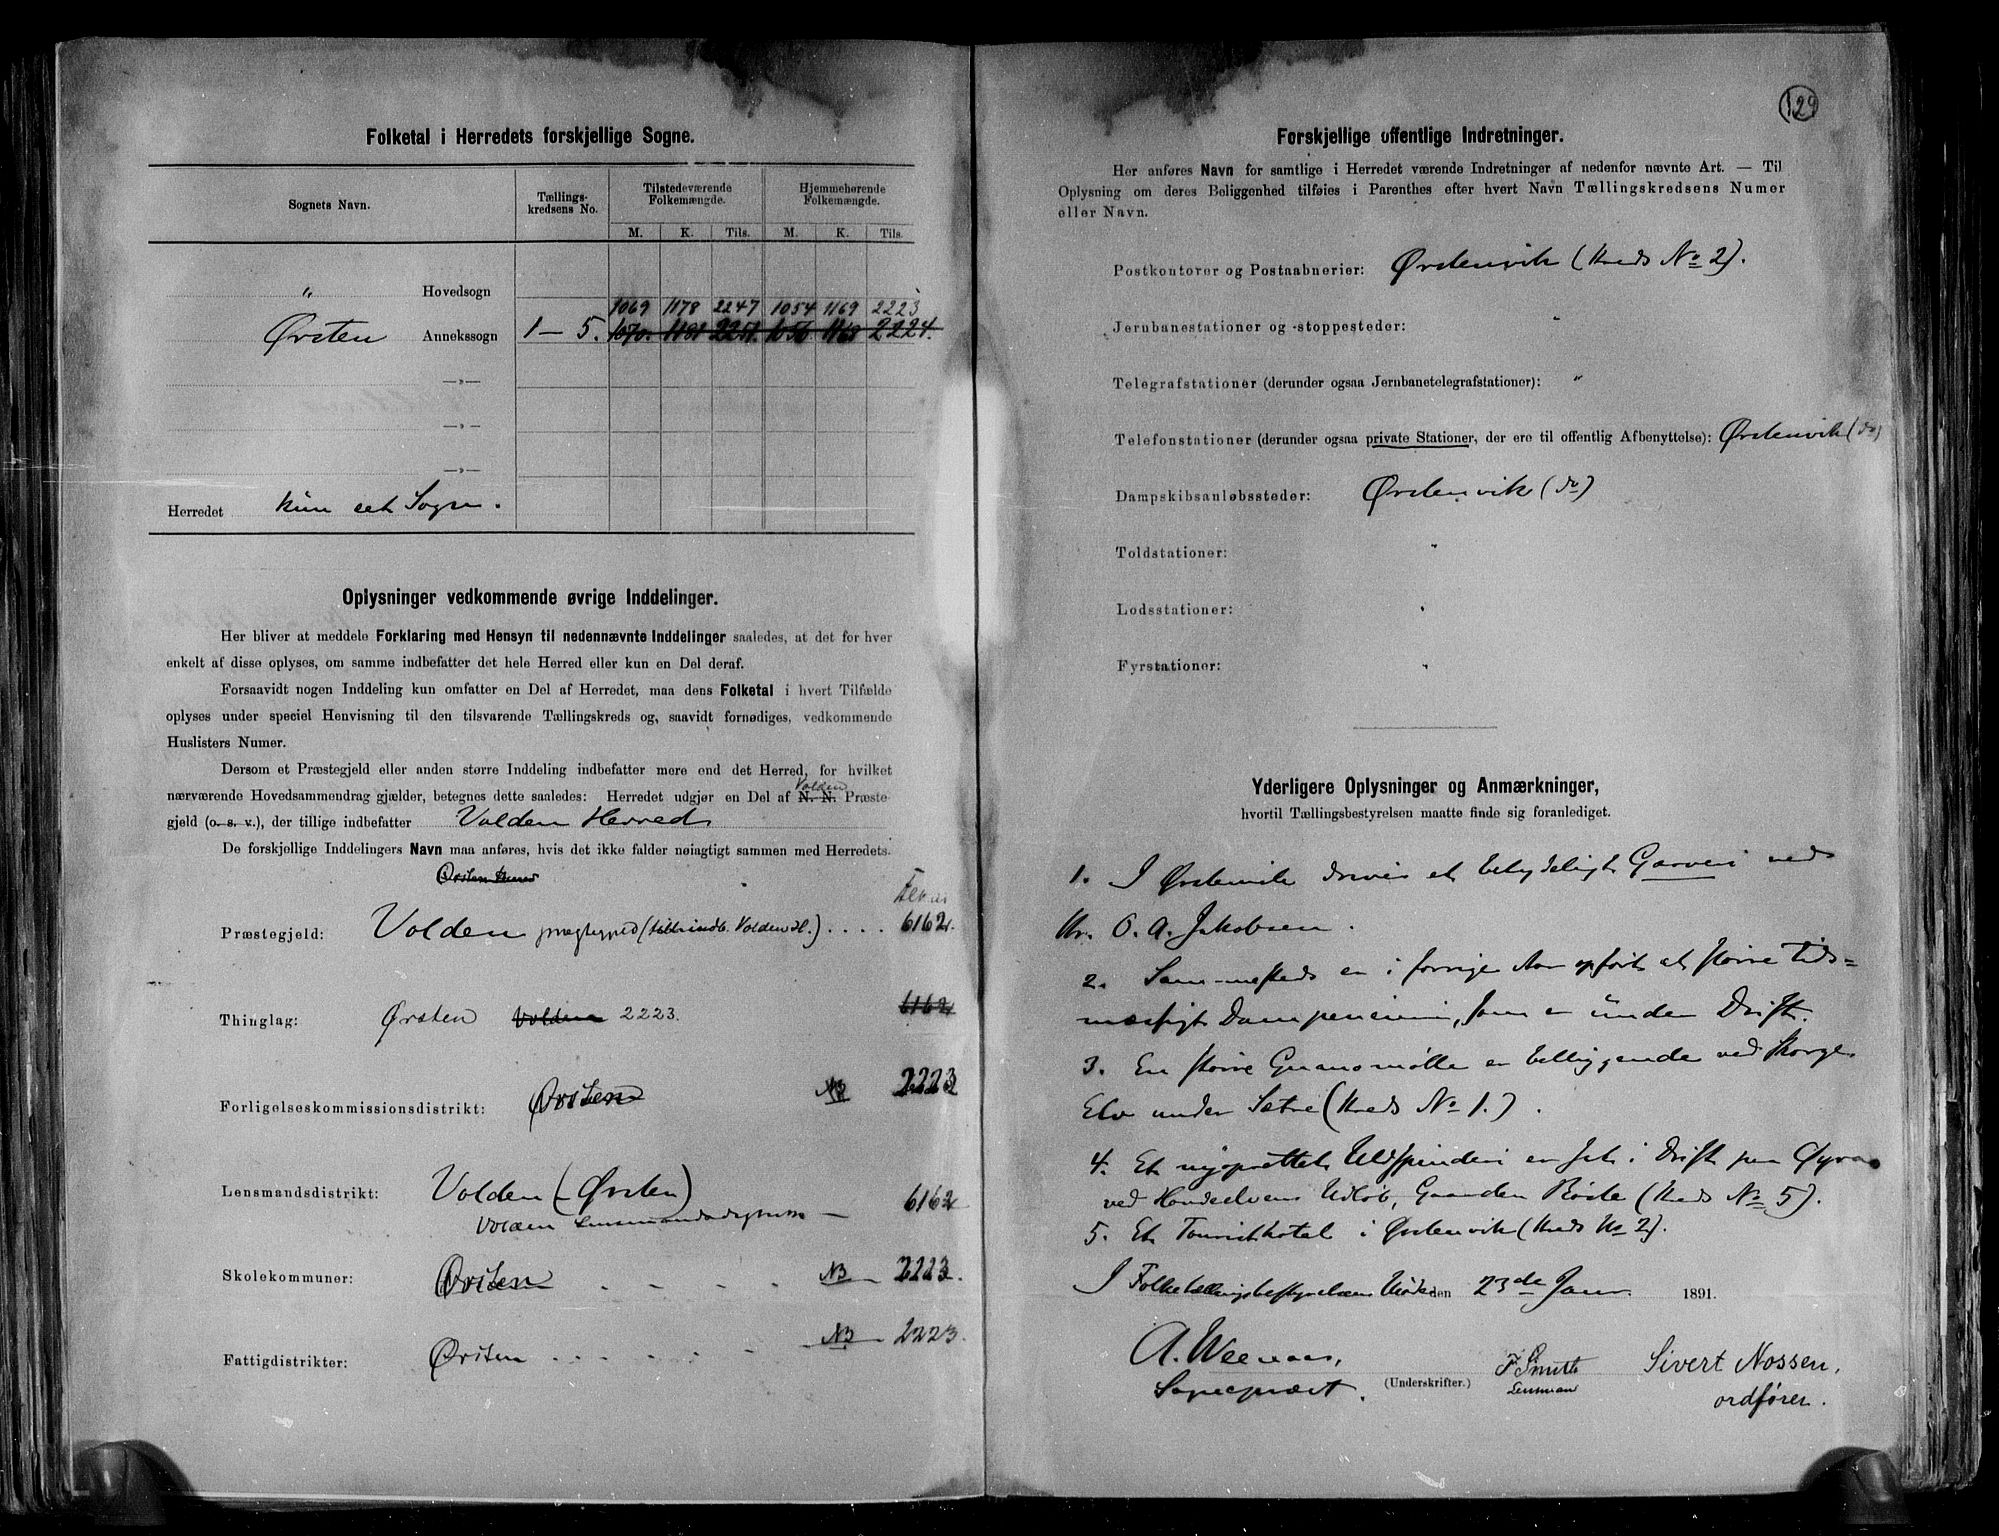 Folketal i Herredets forskjellige Sogne.
Sognets Navn. Tællings-kredsens No. Tilstedeværende Folkemængde. Hjemmehørende Folkemængde.
M. K. Tils. M. K. Tils.
" Hovedsogn
1069 1178 2247 1054 1169 2223
Ørsten Annekssogn 1-5. 1070. 1181 2251. 1056 1168 2224.
—»—
—»—
—»—
Herredet kun eet Sogn.
Oplysninger vedkommende øvrige Inddelinger.
Her bliver at meddele Forklaring med Hensyn til nedennævnte Inddelinger saaledes, at det for hver
enkelt af disse oplyses, om samme indbefatter det hele Herred eller kun en Del deraf.
Forsaavidt nogen Inddeling kun omfatter en Del af Herredet, maa dens Folketal i hvert Tilfælde
oplyses under speciel Henvisning til den tilsvarende Tællingskreds og, saavidt fornødiges, vedkommende
Huslisters Numer.
Dersom et Præstegjeld eller anden større Inddeling indbefatter mere end det Herred, for hvilket
Volden
nærværende Hovedsammendrag gjælder, betegnes dette saaledes: Herredet udgjør en Del af N. N. Præste-
gjeld (o. s. v.), der tillige indbefatter Volden Herred
De forskjellige Inddelingers Navn maa anføres, hvis det ikke falder nøiagtigt sammen med Herredets.
Ørsten
Præstegjeld: Volden prgjd (Volden H.) .... 6162.
Thinglag: Ørsten Volden 2223. 6162
Forligelseskommissionsdistrikt: Ørsten NB 2223
Lensmandsdistrikt: Volden (- Ørsten)
Volden Lensmandsdistr. — 6162
Skolekommuner: Ørsten - - - NB — 2223.
Fattigdistrikter: Ørsten - - - - NB — 2223.
129
Forskjellige offentlige Indretninger.
Her anføres Navn for samtlige i Herredet værende Indretninger af nedenfor nævnte Art. — Til
Oplysning om deres Beliggenhed tilføies i Parenthes efter hvert Navn Tællingskredsens Numer
eller Navn.
Postkontorer og Postaabnerier: Ørstenvik (Kreds No 2).
Jernbanestationer og -stoppesteder: "
Telegrafstationer (derunder ogsaa Jernbanetelegrafstationer): "
Telefonstationer (derunder ogsaa private Stationer, der ere til offentlig Afbenyttelse): Ørstenvik (do)
Dampskibsanløbssteder: Ørstenvik (do)
Toldstationer: "
Lodsstationer: "
Fyrstationer: "
Yderligere Oplysninger og Anmærkninger,
hvortil Tællingsbestyrelsen maatte finde sig foranlediget.
1. I Ørstenvik drives et betydeligt Garveri ved
Hr. O. A. Jakobsen.
2. Sammesteds er i forrige Aar opført et større tids-
mæssigt Damp, som er under Drift.
3. En større Guanomølle er beliggende ved Skorge
Elv under Sætre (Kreds No 1.).
4. Et nyoprettet Uldspinderi er sat i Drift paa Øyra
ved Hovdeelvens Udløb, Gaarden Röste (Kreds No 5).
5. Et Touristhotel i Ørstenvik (Kreds No 2).
I Folketællingsbestyrelsens Møde den 23de Janr. 1891.
A. Weenaas, F. Smith Sivert Nossen,
Sognepræst. (Underskrifter.) Lensmand ordfører.